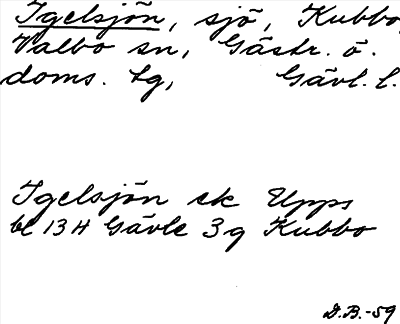 Igelsjön, sjö, Kubbo,
Valbo sn, Gästr. ö.
doms. tg, Gävl. l.
Igelsjön ek Upps
bl 13 H Gävle 3g Kubbo
D.B.-59